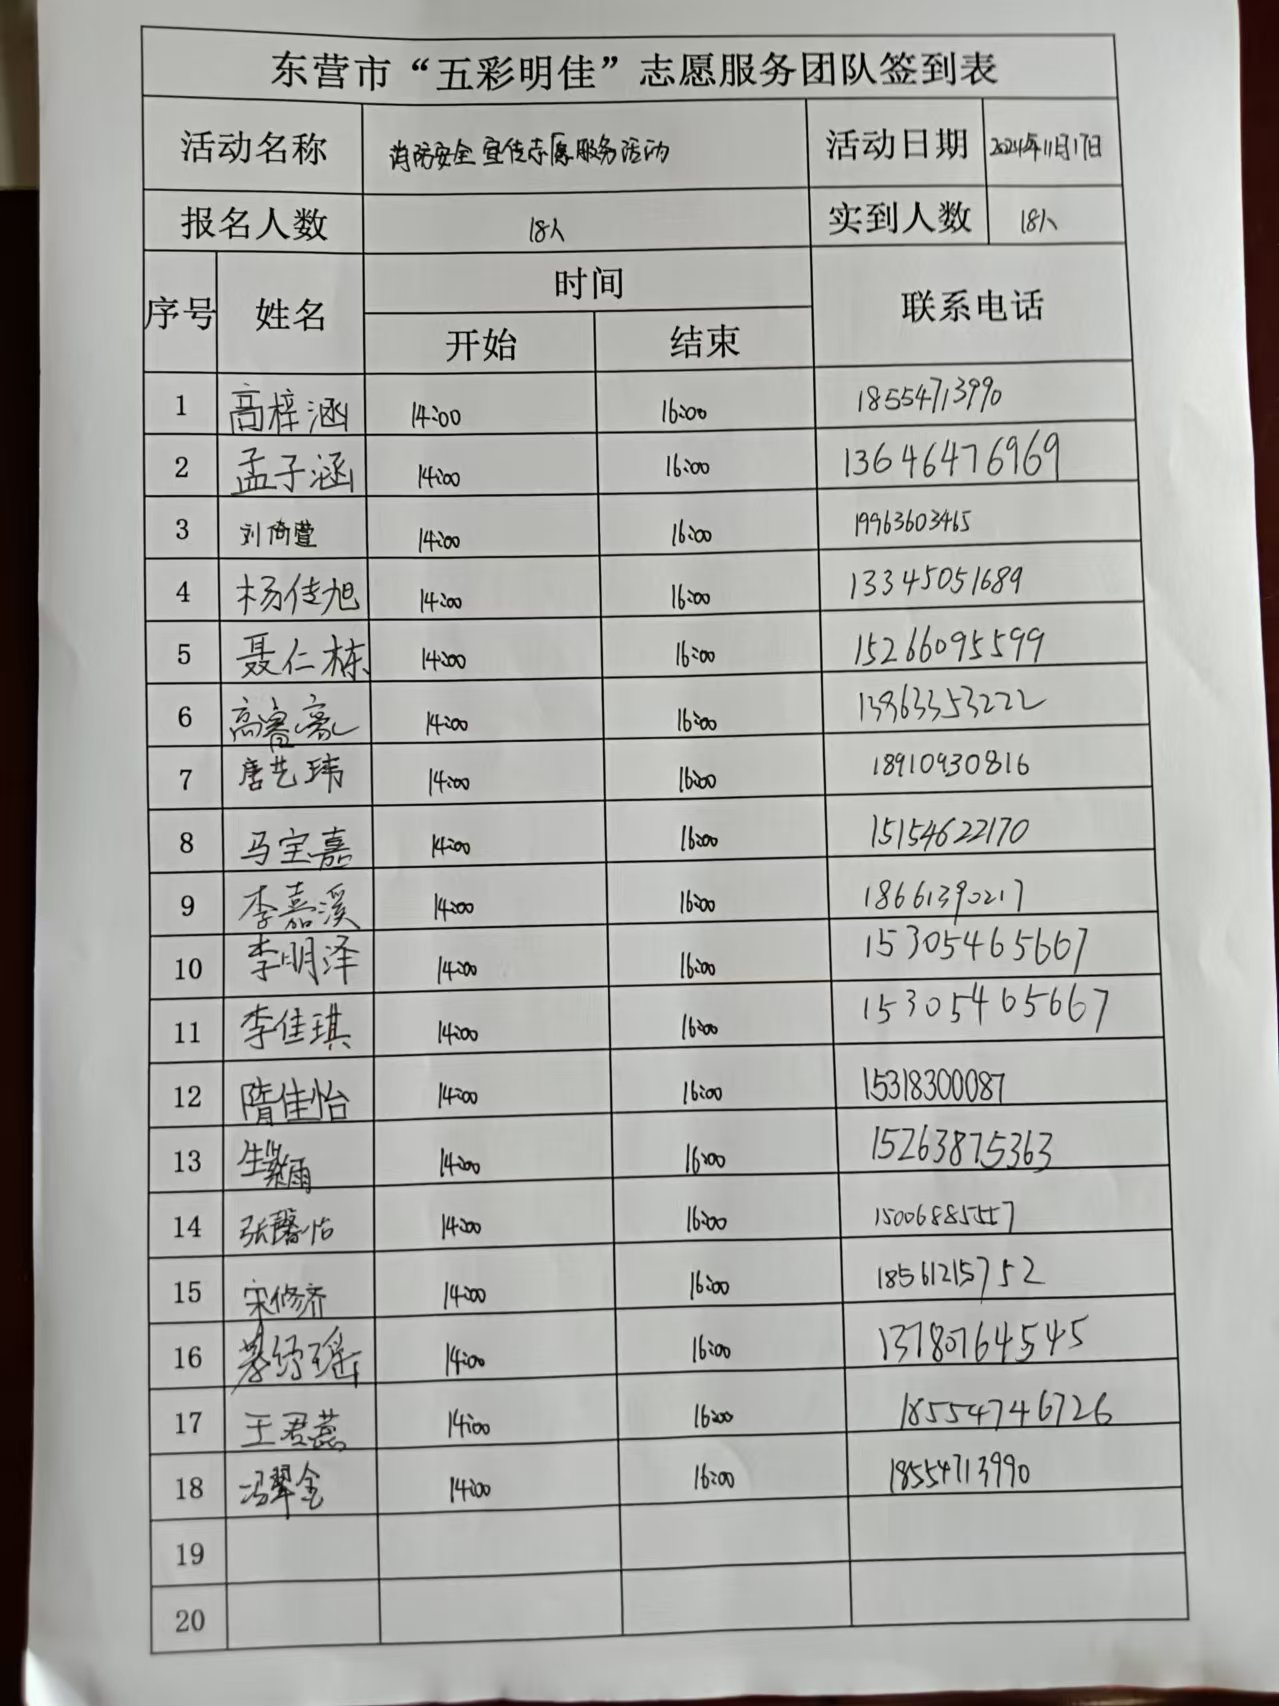 东营市“五彩明佳”志愿服务团队签到表
活动名称 消防安全宣传志愿服务活动 活动日期 2024年11月17日
报名人数 18人 实到人数 18人
序号 姓名 时间 联系电话
开始 结束
1 高梓涵 14:00 16:00 18554713990
2 孟子涵 14:00 16:00 13646476969
3 刘倚萱 14:00 16:00 19963603465
4 杨佳旭 14:00 16:00 13345051689
5 聂仁栋 14:00 16:00 15266095599
6 高睿豪 14:00 16:00 13963353222
7 唐艺玮 14:00 16:00 18910930816
8 马宝嘉 14:00 16:00 15154622170
9 李嘉溪 14:00 16:00 18661390217
10 李明泽 14:00 16:00 15305465667
11 李佳琪 14:00 16:00 15305465667
12 隋佳怡 14:00 16:00 15318300087
13 14:00 16:00 15263875363
14 张馨怡 14:00 16:00 15006885557
15 宋修齐 14:00 16:00 18561215752
16 14:00 16:00 13780764545
17 王君蕊 14:00 16:00 18554746726
18 冯翠金 14:00 16:00 18554713990
19
20